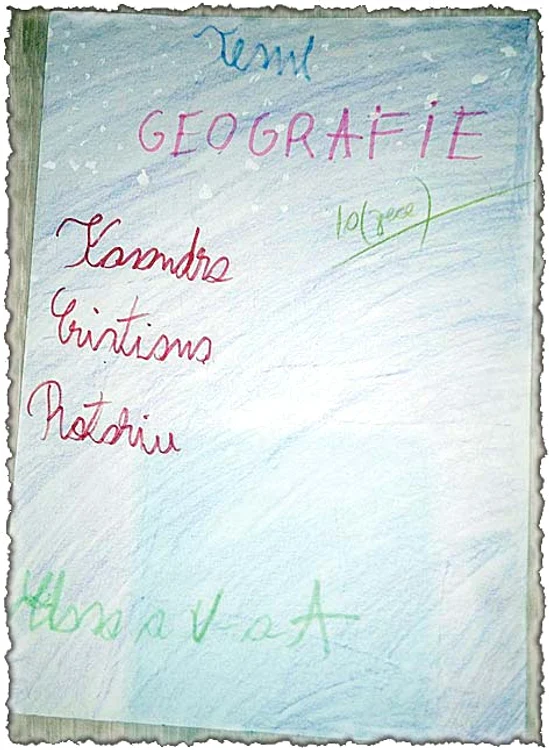 Temă
GEOGRAFIE
10(zece)
Kasandra
Cristiana
Rotariu
Clasa a V-a A